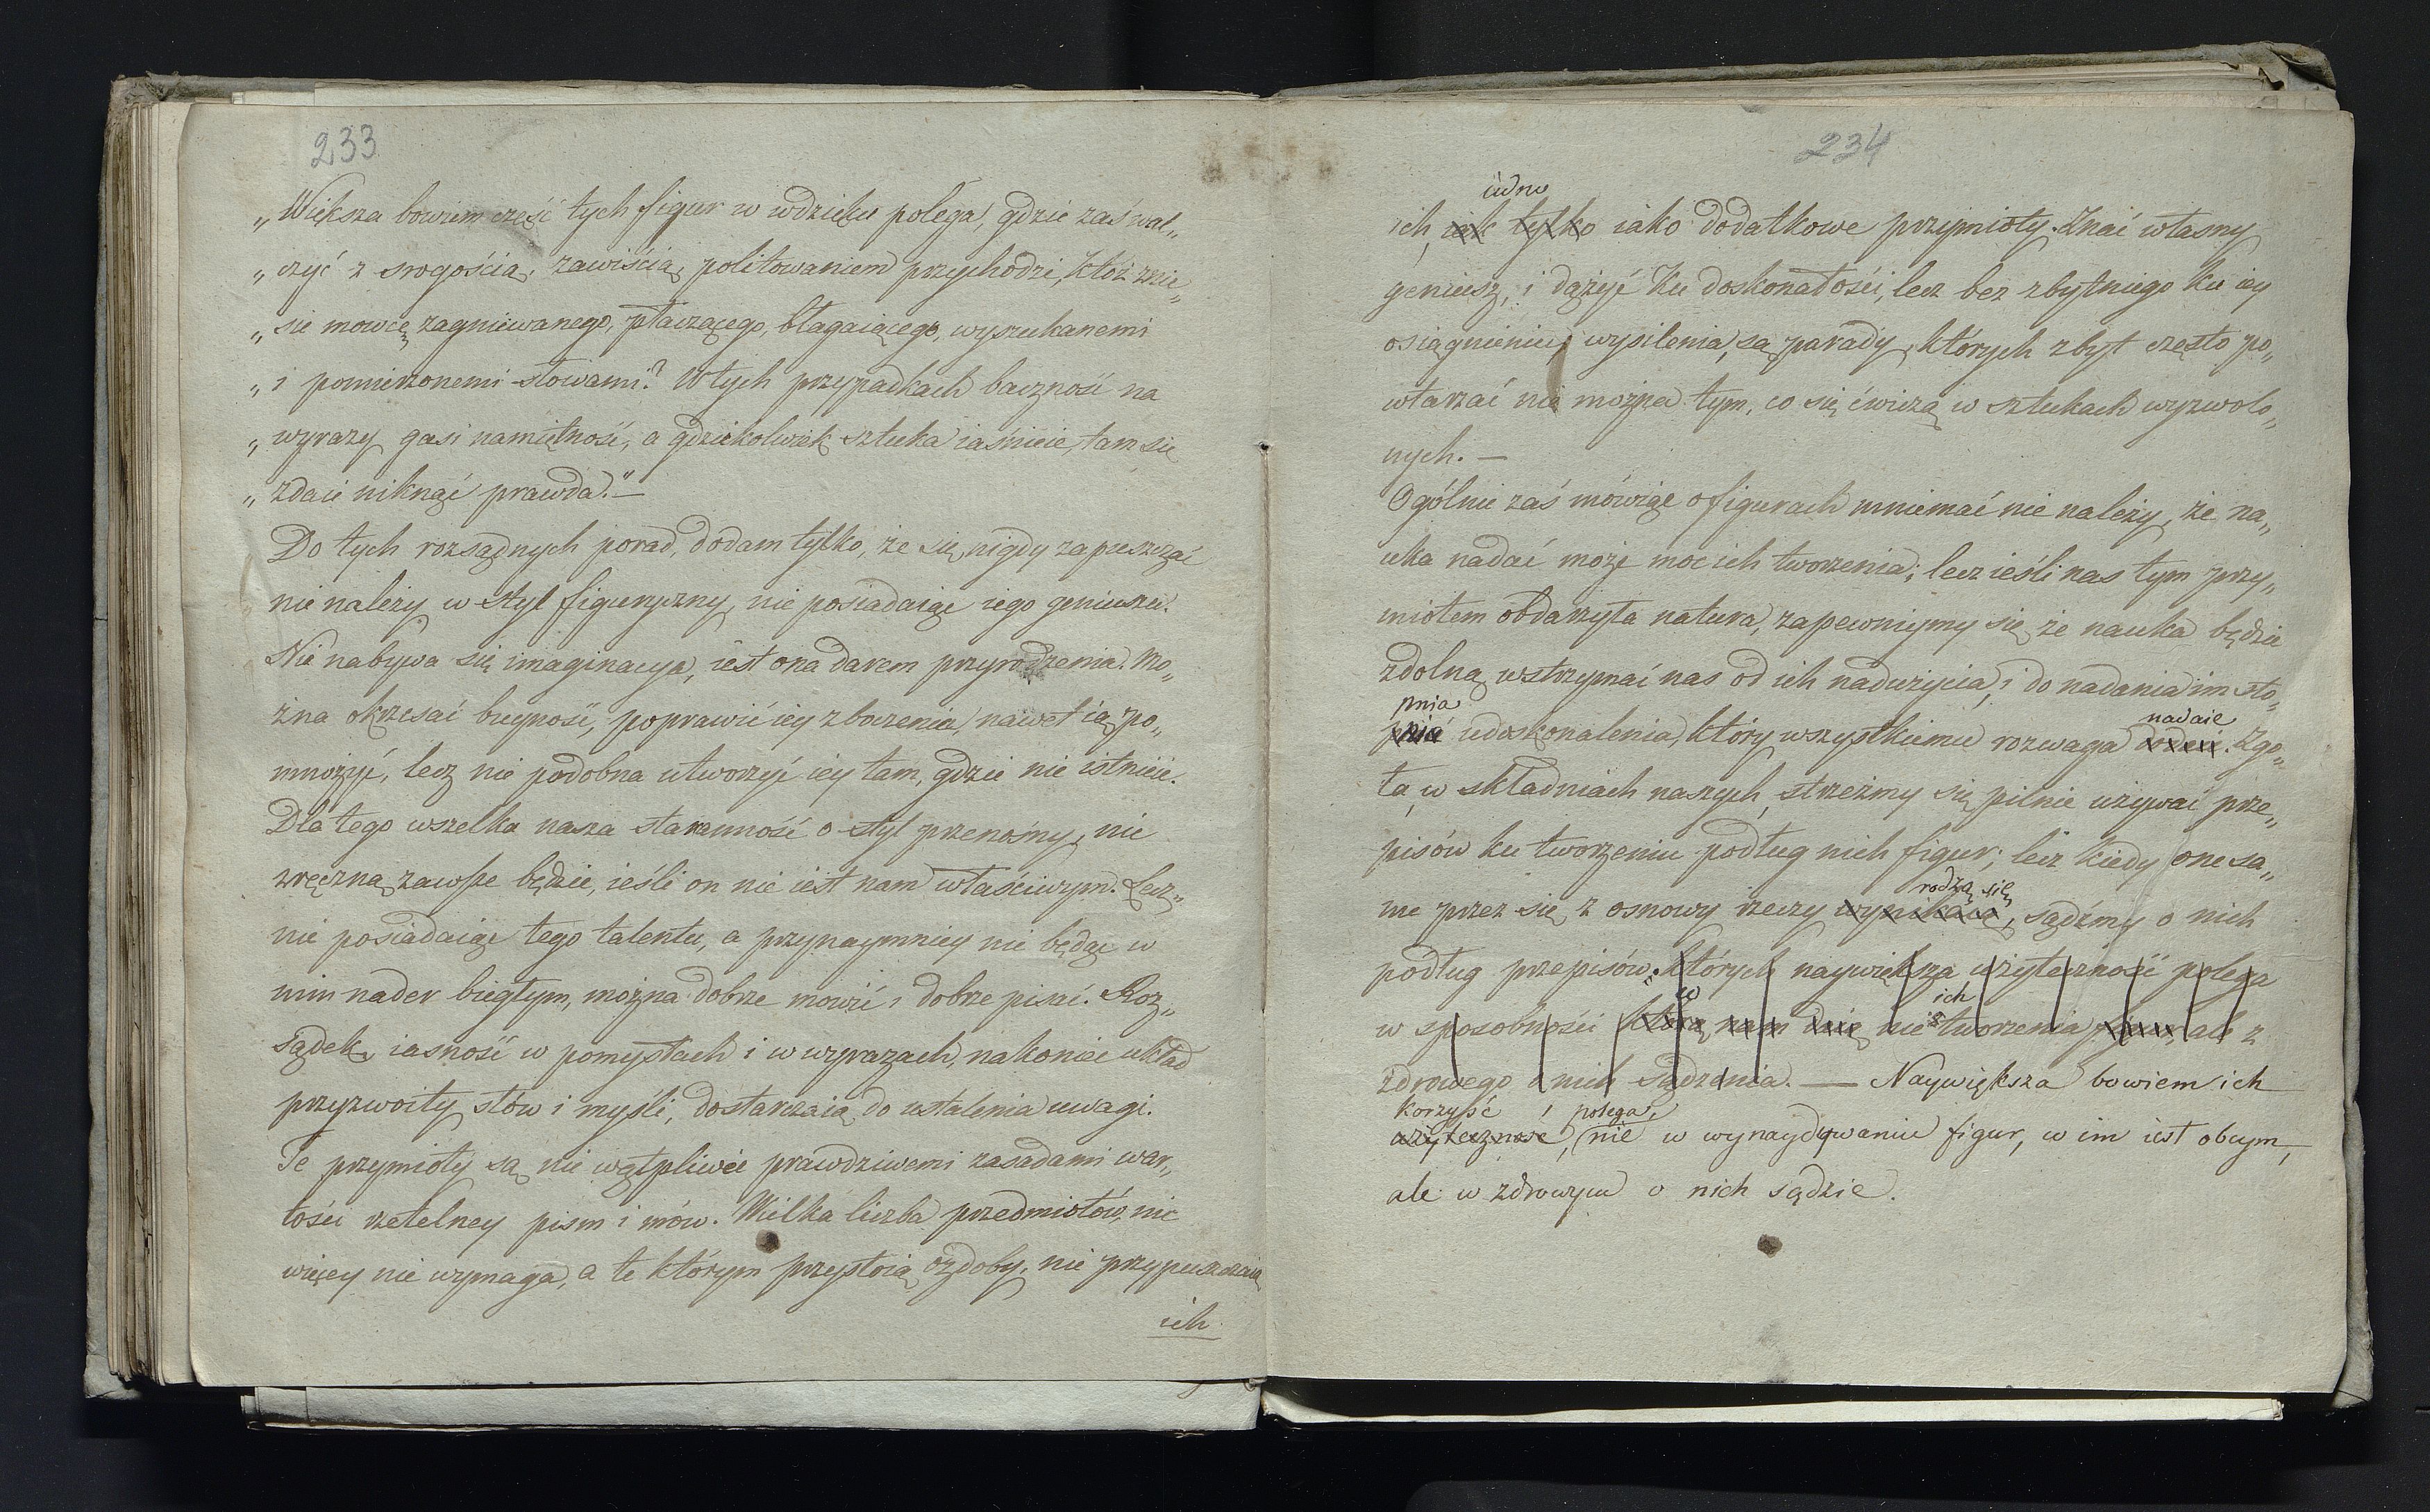 233
„Większa bowiem część tych figur w wdzięku polega, gdzie zaś wal„
„czyć z srogością, zawiścią, politowaniem przychodzi, któż znie„
„sie mowcę zagniewanego, płaczącego, błagaiącego, wyszukanemi
„i pomierzonemi słowami? W tych przypadkach baczność na
„wyrazy gasi namiętność, a gdziekolwiek sztuka iaśnieie, tam się
„zdaie niknąć prawda.“—
Do tych rozsądnych porad, dodam tylko, że się nigdy zapuszczać
nie należy w styl figuryczny, nie posiadaiąc iego geniuszu.
Nie nabywa się imaginacya, iest ona darem przyrodzenia. Mo„
żna okrzesać buyność, poprawić iey zboczenia, nawet ią po„
mnożyć, lecz nie podobna utworzyć iey tam, gdzie nie istnieie.
Dla tego wszelka nasza staranność o styl przenośny, nie
zręczną zawsze będzie, ieśli on nie iest nam właściwym. Lecz„
nie posiadaiąc tego talentu, a przynaymniey nie będąc w
nim nader biegłym, można dobrze mowić i dobrze pisać. Roz„
sądek, iasność w pomysłach i w wyrazach, nakoniec układ
przyzwoity słów i myśli, dostarczaią do ustalenia uwagi.
Te przymioty są nie wątpliwie prawdziwemi zasadami war„
tości rzetelney pism i mów. Wielka liczba przedmiotów, nic
więcey nie wymaga, a te którym przystoią ozdoby, nie przypuszczaią
ich
234
iedno
ich, iak tylko iako dodatkowe przymioty. Znać własny
geniusz, i dążyć ku doskonałości, lecz bez zbytniego ku iey
osiągnieniu wysilenia, są parady, których zbyt często po„
wtarzać nie można tym, co się ćwiczą w sztukach wyzwolo„
nych. —
Ogólnie zaś mówiąc o figurach mniemać nie należy, że na„
uka nadać może moc ich tworzenia; lecz ieśli nas tym przy„
miotem obdarzyła natura, zapewniymy się, że nauka będzie
zdolną wstrzymać nas od ich nadużycia, i do nadania im sto„
pnia nadaie
udoskonalenia, który wszystkiemu rozwaga Zgo„
ła, w składniach naszych, strzeżmy się pilnie używać prze„
pisów ku tworzeniu podług nich figur; lecz kiedy one sa„
rodzą się
me przez się z osnowy rzeczy wynikaią, sądźmy o nich
podług przepisów, których naywiększa użyteczność polega
w ich
w sposobności którą nam daie nie tworzenia ale z
zdrowego o nich sądzenia. — Naywiększa bowiem ich
korzyść polega,
użyteczność, nie w wynaydywaniu figur, w im iest obcym,
ale w zdrowym o nich sądzie.